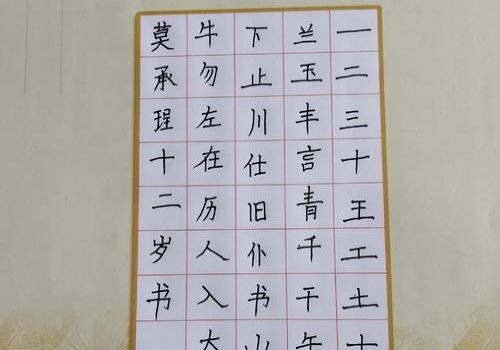 一二三十王工土
兰玉丰言青千干午
下止川仕旧仆书山
牛勿左在历人入大
莫承珵十二岁书